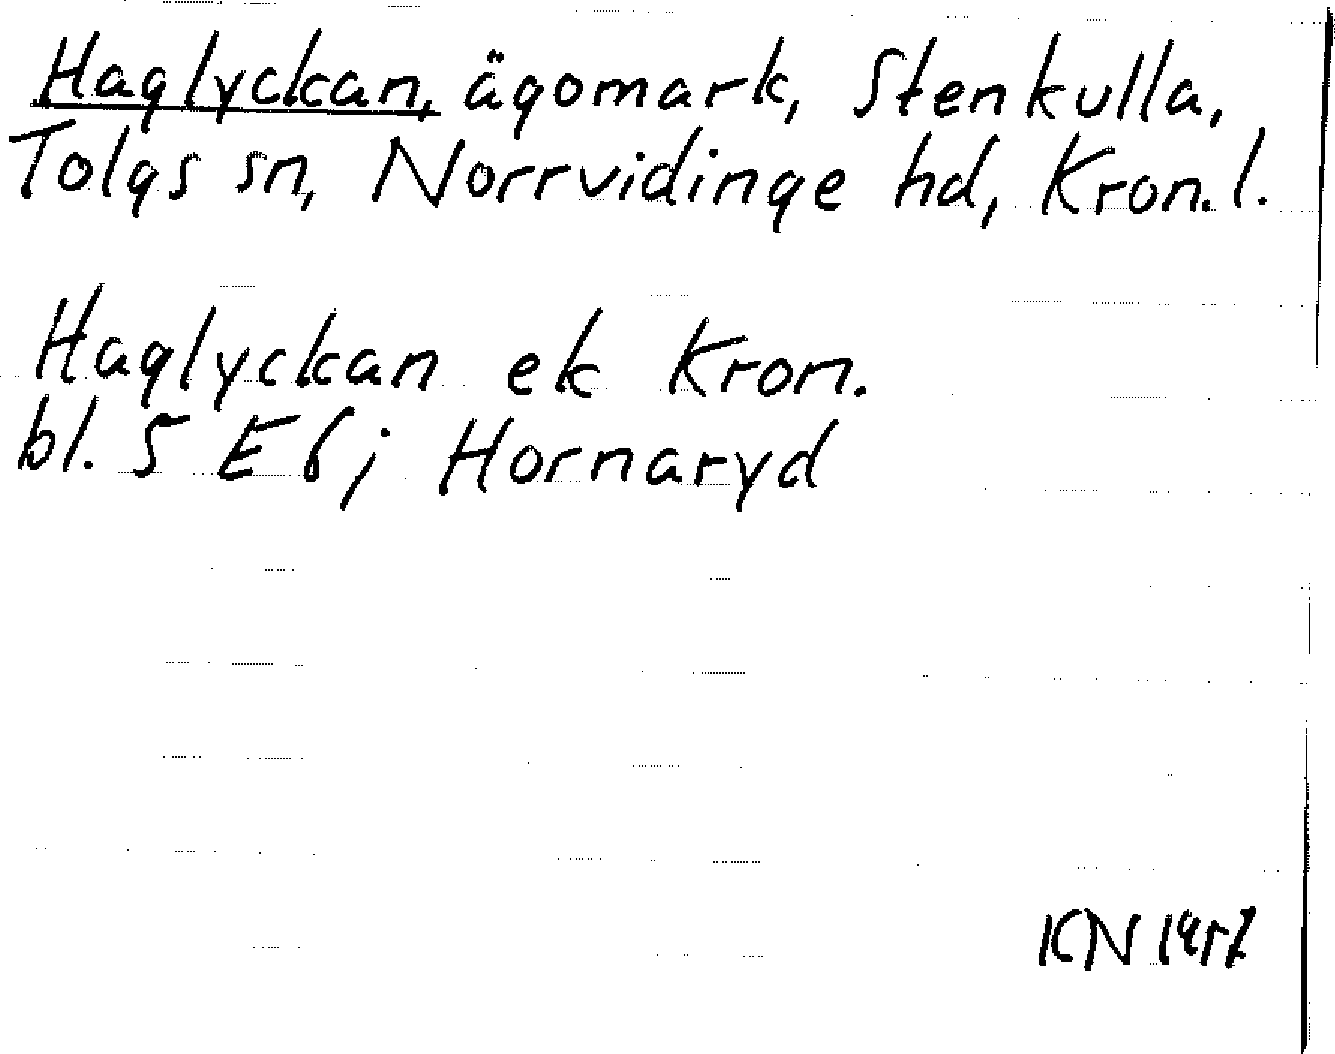 Haglyckan, ägomark, Stenkulla,
Tolgs sn, Norrvidinge hd, Kron. l.
Haglyckan ek Kron.
bl. 5 E6; Hornaryd
KN 1957